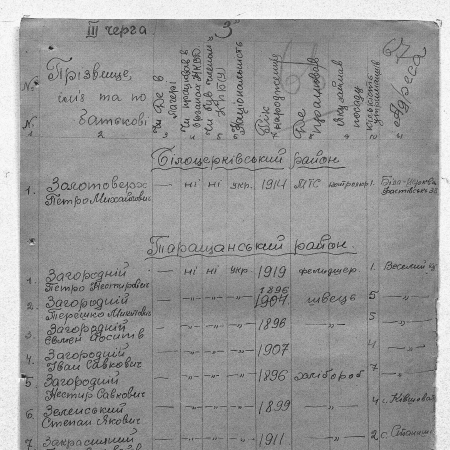 III черга
3
67
№
Прізвище,
ім'я та по
батькові
Чи був в
таборі
Чи працював в
органах НКВС
Чи був членом
КП(б)У
Національність
Рік
народження
Де
працював
Яку займав
посаду
Кількість
утриманців
Адреса
1 2
Білоцерківський район
1. Золотоверх Петро Михайлович — ні ні укр. 1914 МТС контролер 1. Біла-Церква
Таращанський район.
1. Загородній Петро Нестирович — ні ні укр 1919 фельдшер. 1. Веселий
2. Загородній Терешко Микитович — -"- -"- -"- 1896 1904. швець 5 -"-
3. Загородній Євмен Йосипів — -"- -"- -"- 1896 — 5 -"-
4. Загородній Іван Савкович — -"- -"- -"- 1907 — 4 -"-
5. Загородній Нестир Савкович — -"- -"- -"- 1896 хлібороб 7 -"-
6. Зеленський Степан Якович — -"- -"- -"- 1899 -"- 4 с. Ківшовата
7. Закрасніний — -"- -"- -"- 1911 -"- 2 с.